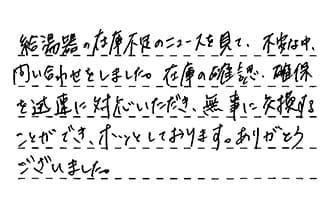 給湯器の在庫不足のニュースを見て、不安な中、
問い合わせをしました。在庫の確認、確保
を迅速に対応いただき、無事に交換する
ことができ、ホッとしております。ありがとう
ございました。